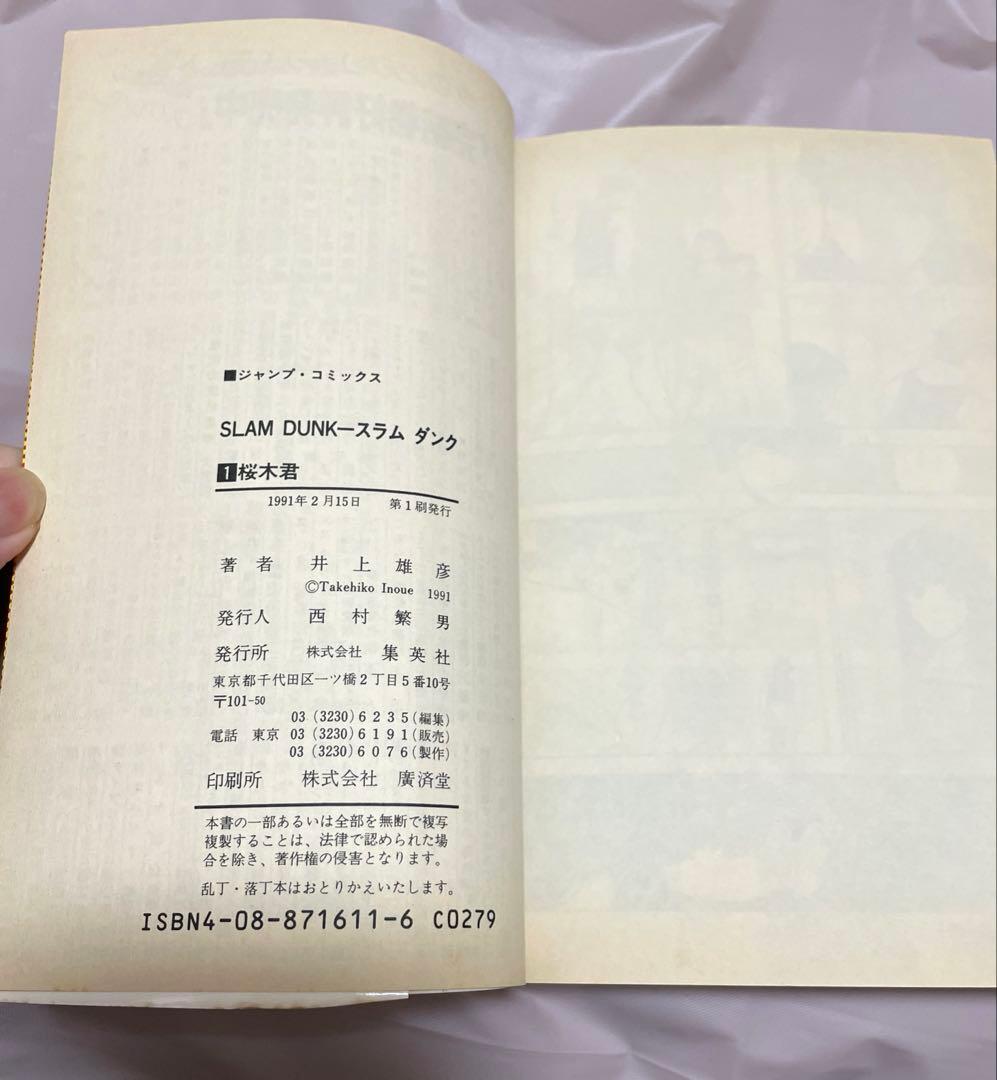 ■ジャンプ・コミックス
SLAM DUNK―スラム ダンク
1桜木君
1991年2月15日 第1刷発行
著者 井上雄彦
©Takehiko Inoue 1991
発行人 西村繁男
発行所 株式会社 集英社
東京都千代田区一ツ橋2丁目5番10号
〒101-50
03(3230)6235(編集)
電話 東京 03(3230)6191(販売)
03(3230)6076(製作)
印刷所 株式会社 廣済堂
本書の一部あるいは全部を無断で複写
複製することは、法律で認められた場
合を除き、著作権の侵害となります。
乱丁・落丁本はおとりかえいたします。
ISBN4-08-871611-6 C0279